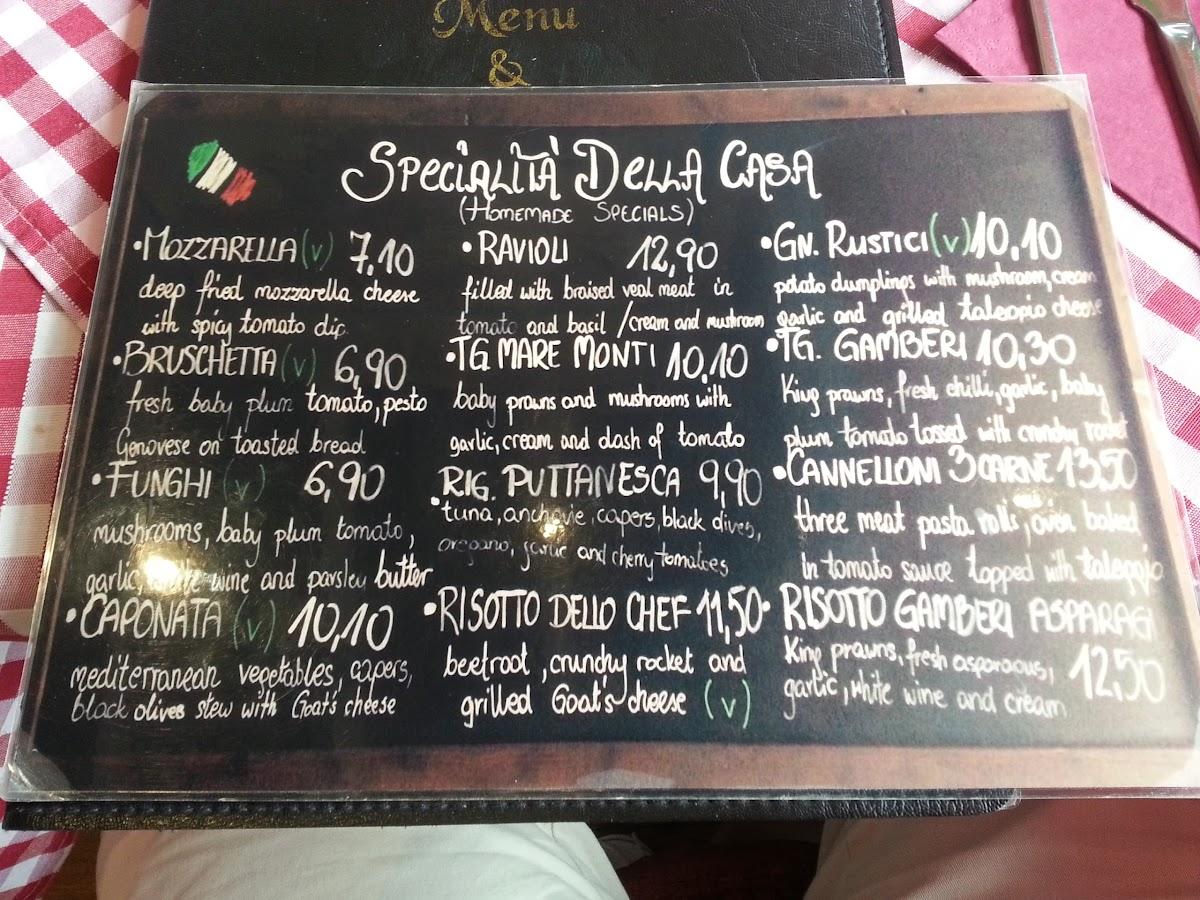 Menu
&
SPECIALITÀ DELLA CASA
(HOMEMADE SPECIALS)
•MOZZARELLA (v) 7,10
deep fried mozzarella cheese
with spicy tomato dip
•BRUSCHETTA (v) 6,90
fresh baby plum tomato, pesto
Genovese on toasted bread
•FUNGHI (v) 6,90
mushrooms, baby plum tomato,
garlic, white wine and parsley butter
•CAPONATA (v) 10,10
mediterranean vegetables, capers,
black olives stew with Goat's cheese
•RAVIOLI 12,90
filled with braised veal meat in
tomato and basil / cream and mushroom
•TG MARE MONTI 10,10
baby prawns and mushrooms with
garlic, cream and dash of tomato
•RIG. PUTTANESCA 9,90
tuna, anchovie, capers, black olives,
oregano, garlic and cherry tomatoes
•RISOTTO DELLO CHEF 11,50
beetroot, crunchy rocket and
grilled Goat's cheese (v)
•GN. RUSTICI (v) 10,10
potato dumplings with mushroom, cream
garlic and grilled taleggio cheese
•TG. GAMBERI 10,30
King prawns, fresh chilli, garlic, baby
plum tomato tossed with crunchy rocket
•CANNELLONI 3 CARNE 13,50
three meat pasta rolls, oven baked
in tomato sauce topped with taleggio
•RISOTTO GAMBERI ASPARAGI
King prawns, fresh asparagus, 12,50
garlic, white wine and cream